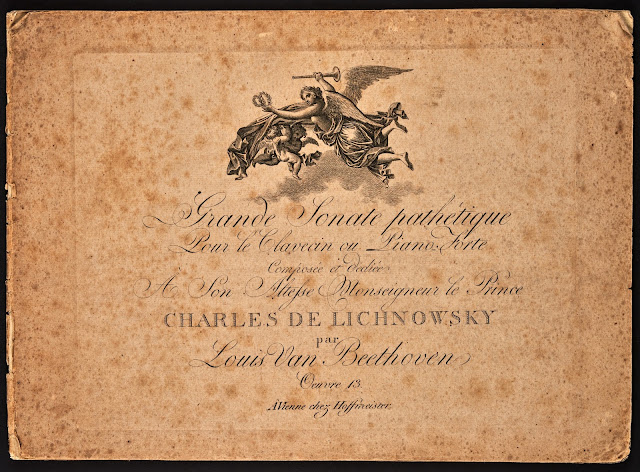 Grande Sonate pathétique
Pour le Clavecin ou Piano-Forte
Composée et dediée
À Son Altesse Monseigneur le Prince
CHARLES DE LICHNOWSKY
par
Louis Van Beethoven
Oeuvre 13
À Vienne chez Hoffmeister